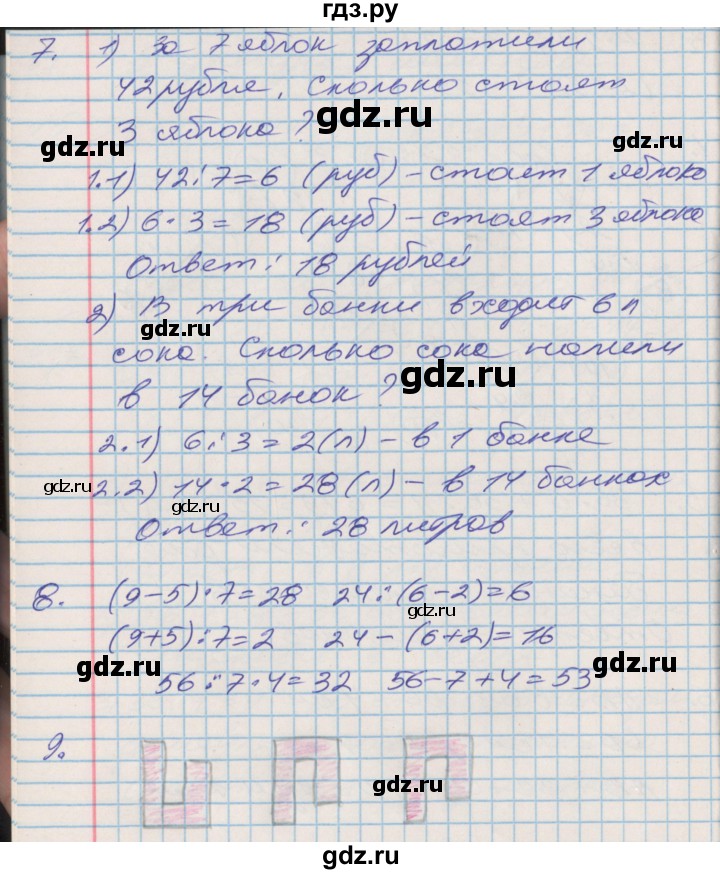 гдз.ру
7. 1) За 7 яблок заплатили
42 рубля. Сколько стоят
gdz.ru
gdz.ru 3 яблока?
1.1) 42:7=6 (руб) – стоит 1 яблоко
1.2) 6·3=18 (руб) – стоят 3 яблока
Ответ: 18 рублей
2) В три банки входит 6 л
gdz.ru
сока. Сколько сока налили
gdz.ru
в 14 банок?
2.1) 6:3=2(л) – в 1 банке
gdz.ru 2.2) 14·2=28(л) – в 14 банках
gdz.ru
Ответ: 28 литров
8. (9-5)·7=28 24:(6-2)=6
gdz.ru
(9+5):7=2 24-(6+2)=16
gdz.ru gdz.ru
56:7·4=32 56-7+4=53
9.
gdz.ru
gdz.ru